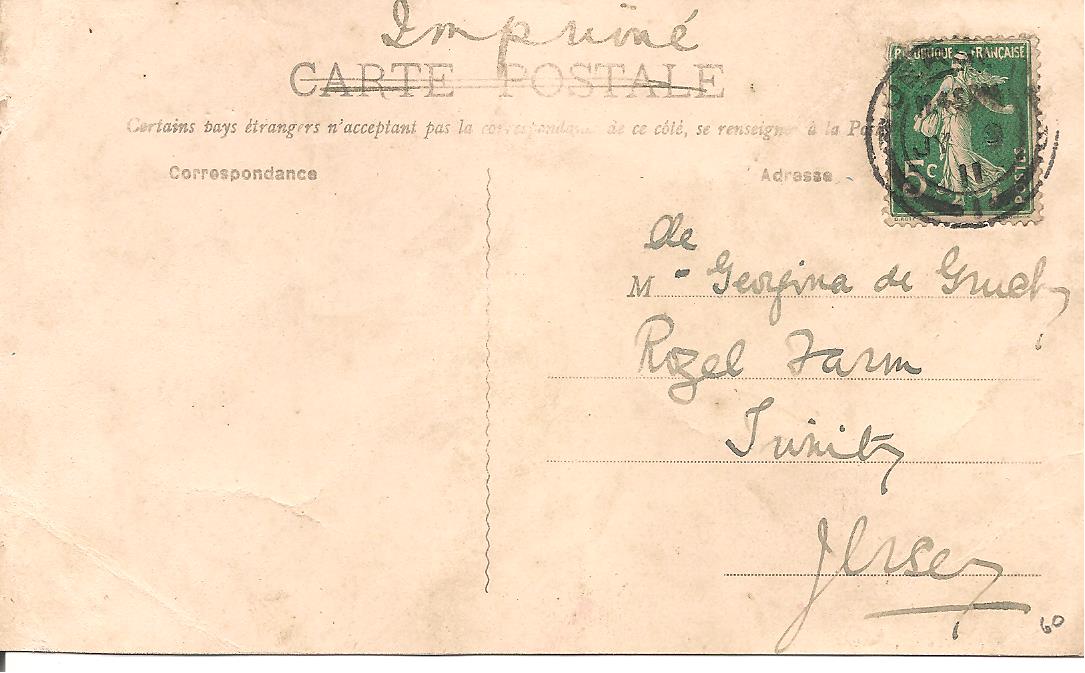 Imprimé
CARTE POSTALE
Certains pays étrangers n'acceptant pas la correspondance de ce côté, se renseigner à la Poste
Correspondance
Adresse
RÉPUBLIQUE FRANÇAISE
5c
POSTES
JY 9
11
de
M Georgina de Gruchy
Rozel Farm
Trinity
Jersey
60